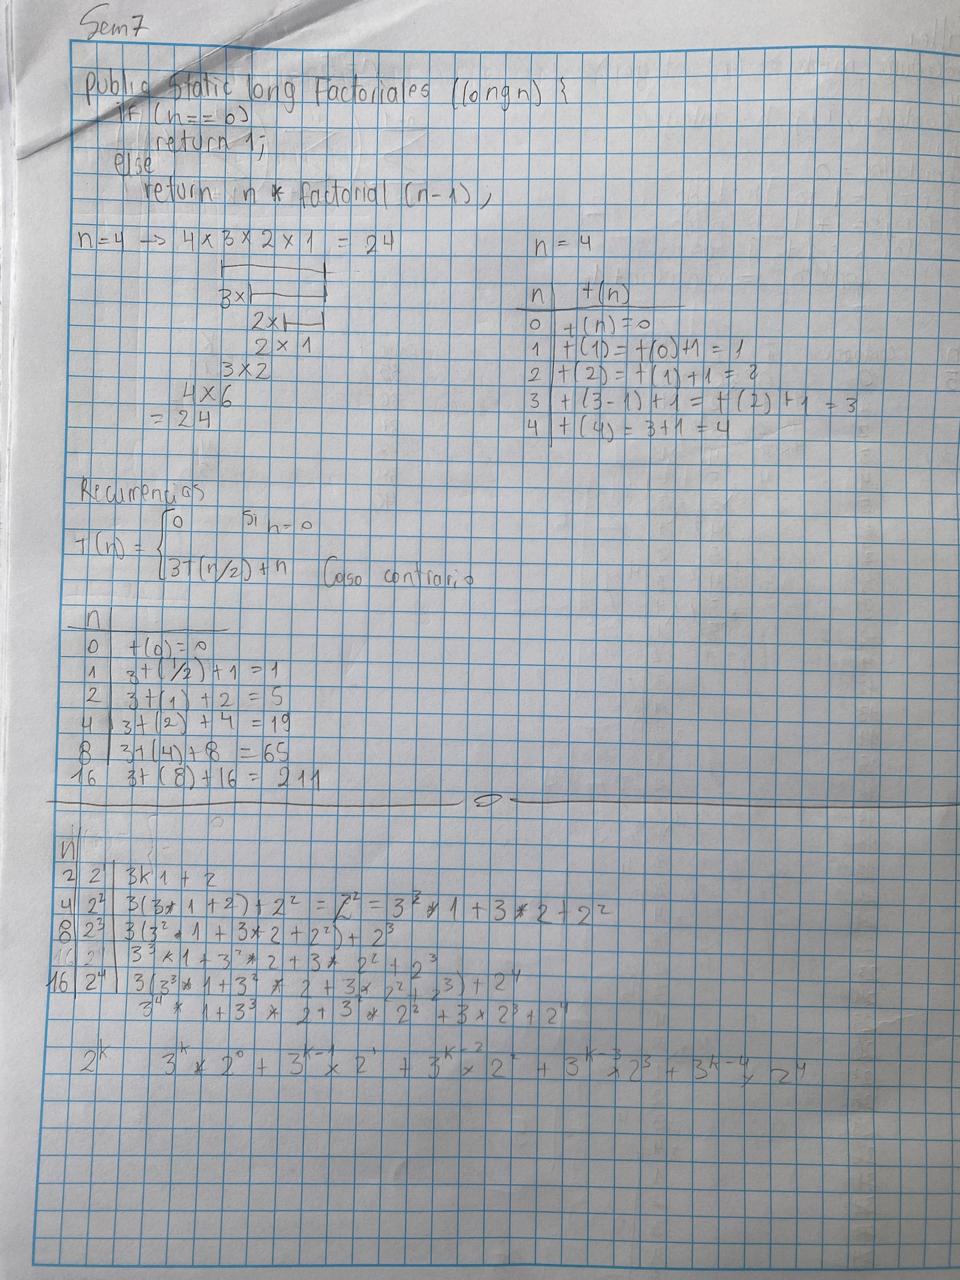 Sem 7
public Static long Factoriales (long n) {
if (n == 0)
return 1;
else
return n * factorial (n-1);
n=4 -> 4 x 3 x 2 x 1 = 24
3x
2x
2 x 1
3 x 2
4 x 6
= 24
n = 4
n | t(n)
0 | t(n) = 0
1 | t(1) = t(0)+1 = 1
2 | t(2) = t(1)+1 = 2
3 | t(3-1)+1 = t(2)+1 = 3
4 | t(4) = 3+1 = 4
Recurrencias
t(n) = { 0 Si n=0
3t(n/2)+n Caso contrario
n
0 | t(0)=0
1 | 3t(1/2)+1 = 1
2 | 3t(1)+2 = 5
4 | 3t(2)+4 = 19
8 | 3t(4)+8 = 65
16 3t(8)+16 = 211
n
2 | 2¹ | 3*1 + 2
4 | 2² | 3(3*1+2)+2² = 2² = 3²*1+3*2+2²
8 | 2³ | 3(3²*1+3*2+2²)+2³
3³*1+3²*2+3*2²+2³
16 | 2⁴ | 3(3³*1+3²*2+3*2²+2³)+2⁴
3⁴*1+3³*2+3²*2²+3*2³+2⁴
2ᵏ 3ᵏ*2⁰ + 3ᵏ⁻¹*2¹ + 3ᵏ⁻²*2² + 3ᵏ⁻³*2³ + 3ᵏ⁻⁴*2⁴